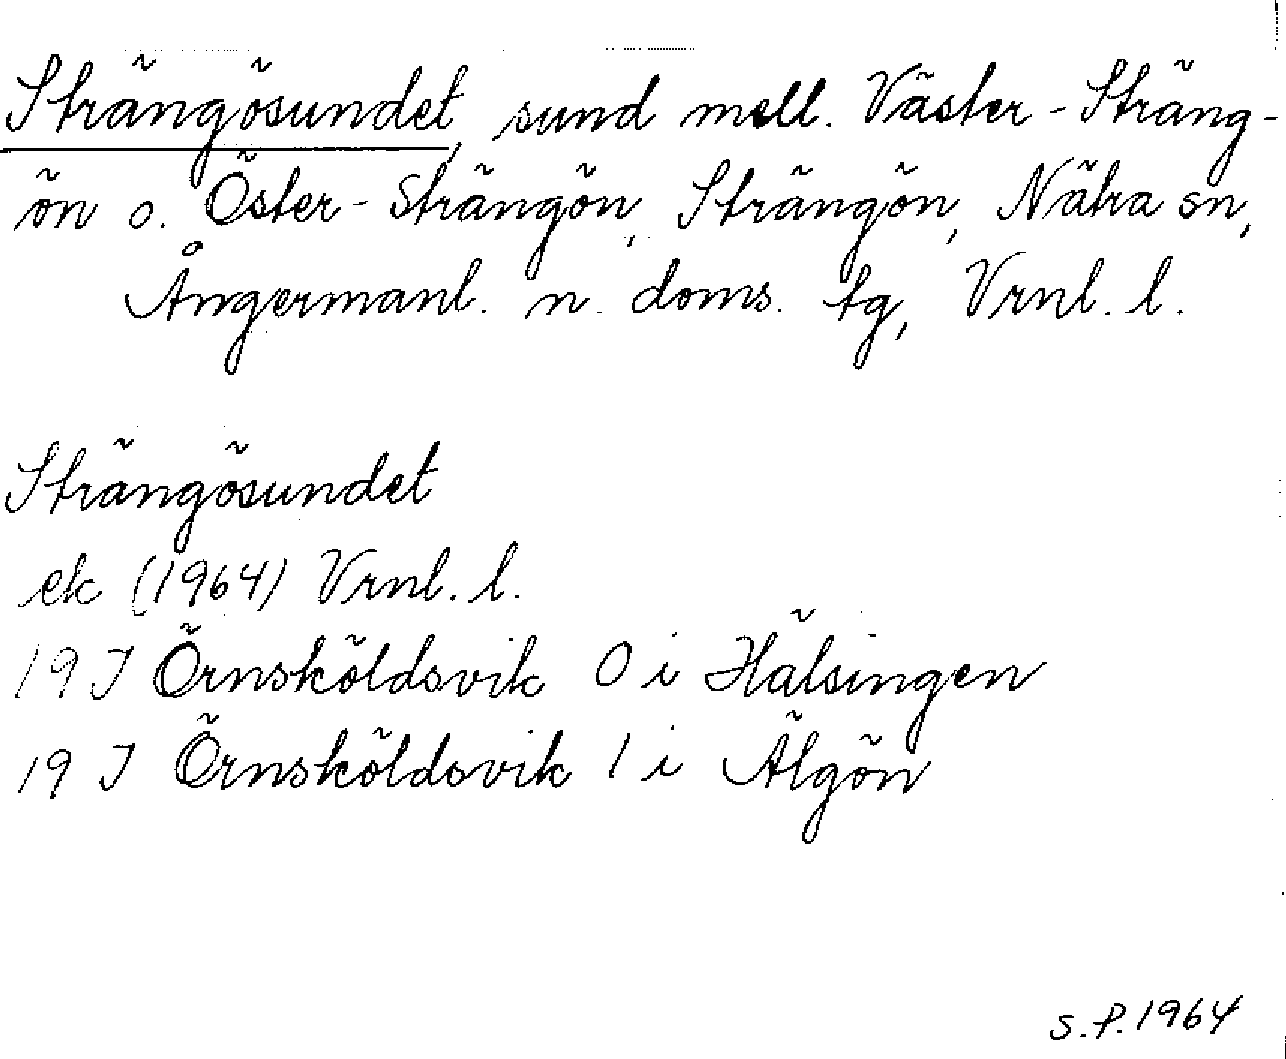 Strängösundet, sund mell. Väster-Sträng-
ön o. Öster-Strängön, Strängön, Nätra sn,
Ångermanl. n. doms. tg, Vrnl. l.
Strängösundet
ek (1964) Vrnl. l.
19 J Örnsköldsvik 0 i Hälsingen
19 J Örnsköldsvik 1 i Älgön
S.P. 1964